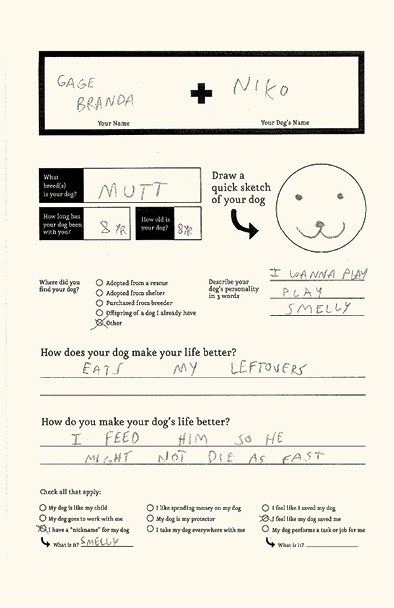 GAGE
BRANDA
NIKO
Your Name
Your Dog's Name
What
breed(s)
is your dog?
MUTT
How long has
your dog been
with you?
8 YR
How old is
your dog?
8 YR
Draw a
quick sketch
of your dog
Where did you
find your dog?
Adopted from a rescue
Adopted from shelter
Purchased from breeder
Offspring of a dog I already have
Other
Describe your
dog's personality
in 3 words
I WANNA PLAY
PLAY
SMELLY
How does your dog make your life better?
EATS MY LEFTOVERS
How do you make your dog's life better?
I FEED HIM SO HE
MIGHT NOT DIE AS FAST
Check all that apply:
My dog is like my child
My dog goes to work with me
I have a "nickname" for my dog
What is it? SMELLY
I like spending money on my dog
My dog is my protector
I take my dog everywhere with me
I feel like I saved my dog
I feel like my dog saved me
My dog performs a task or job for me
What is it?